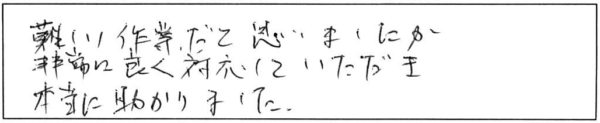 難しい作業だと思いましたが
非常に良く対応していただき
本当に助かりました.